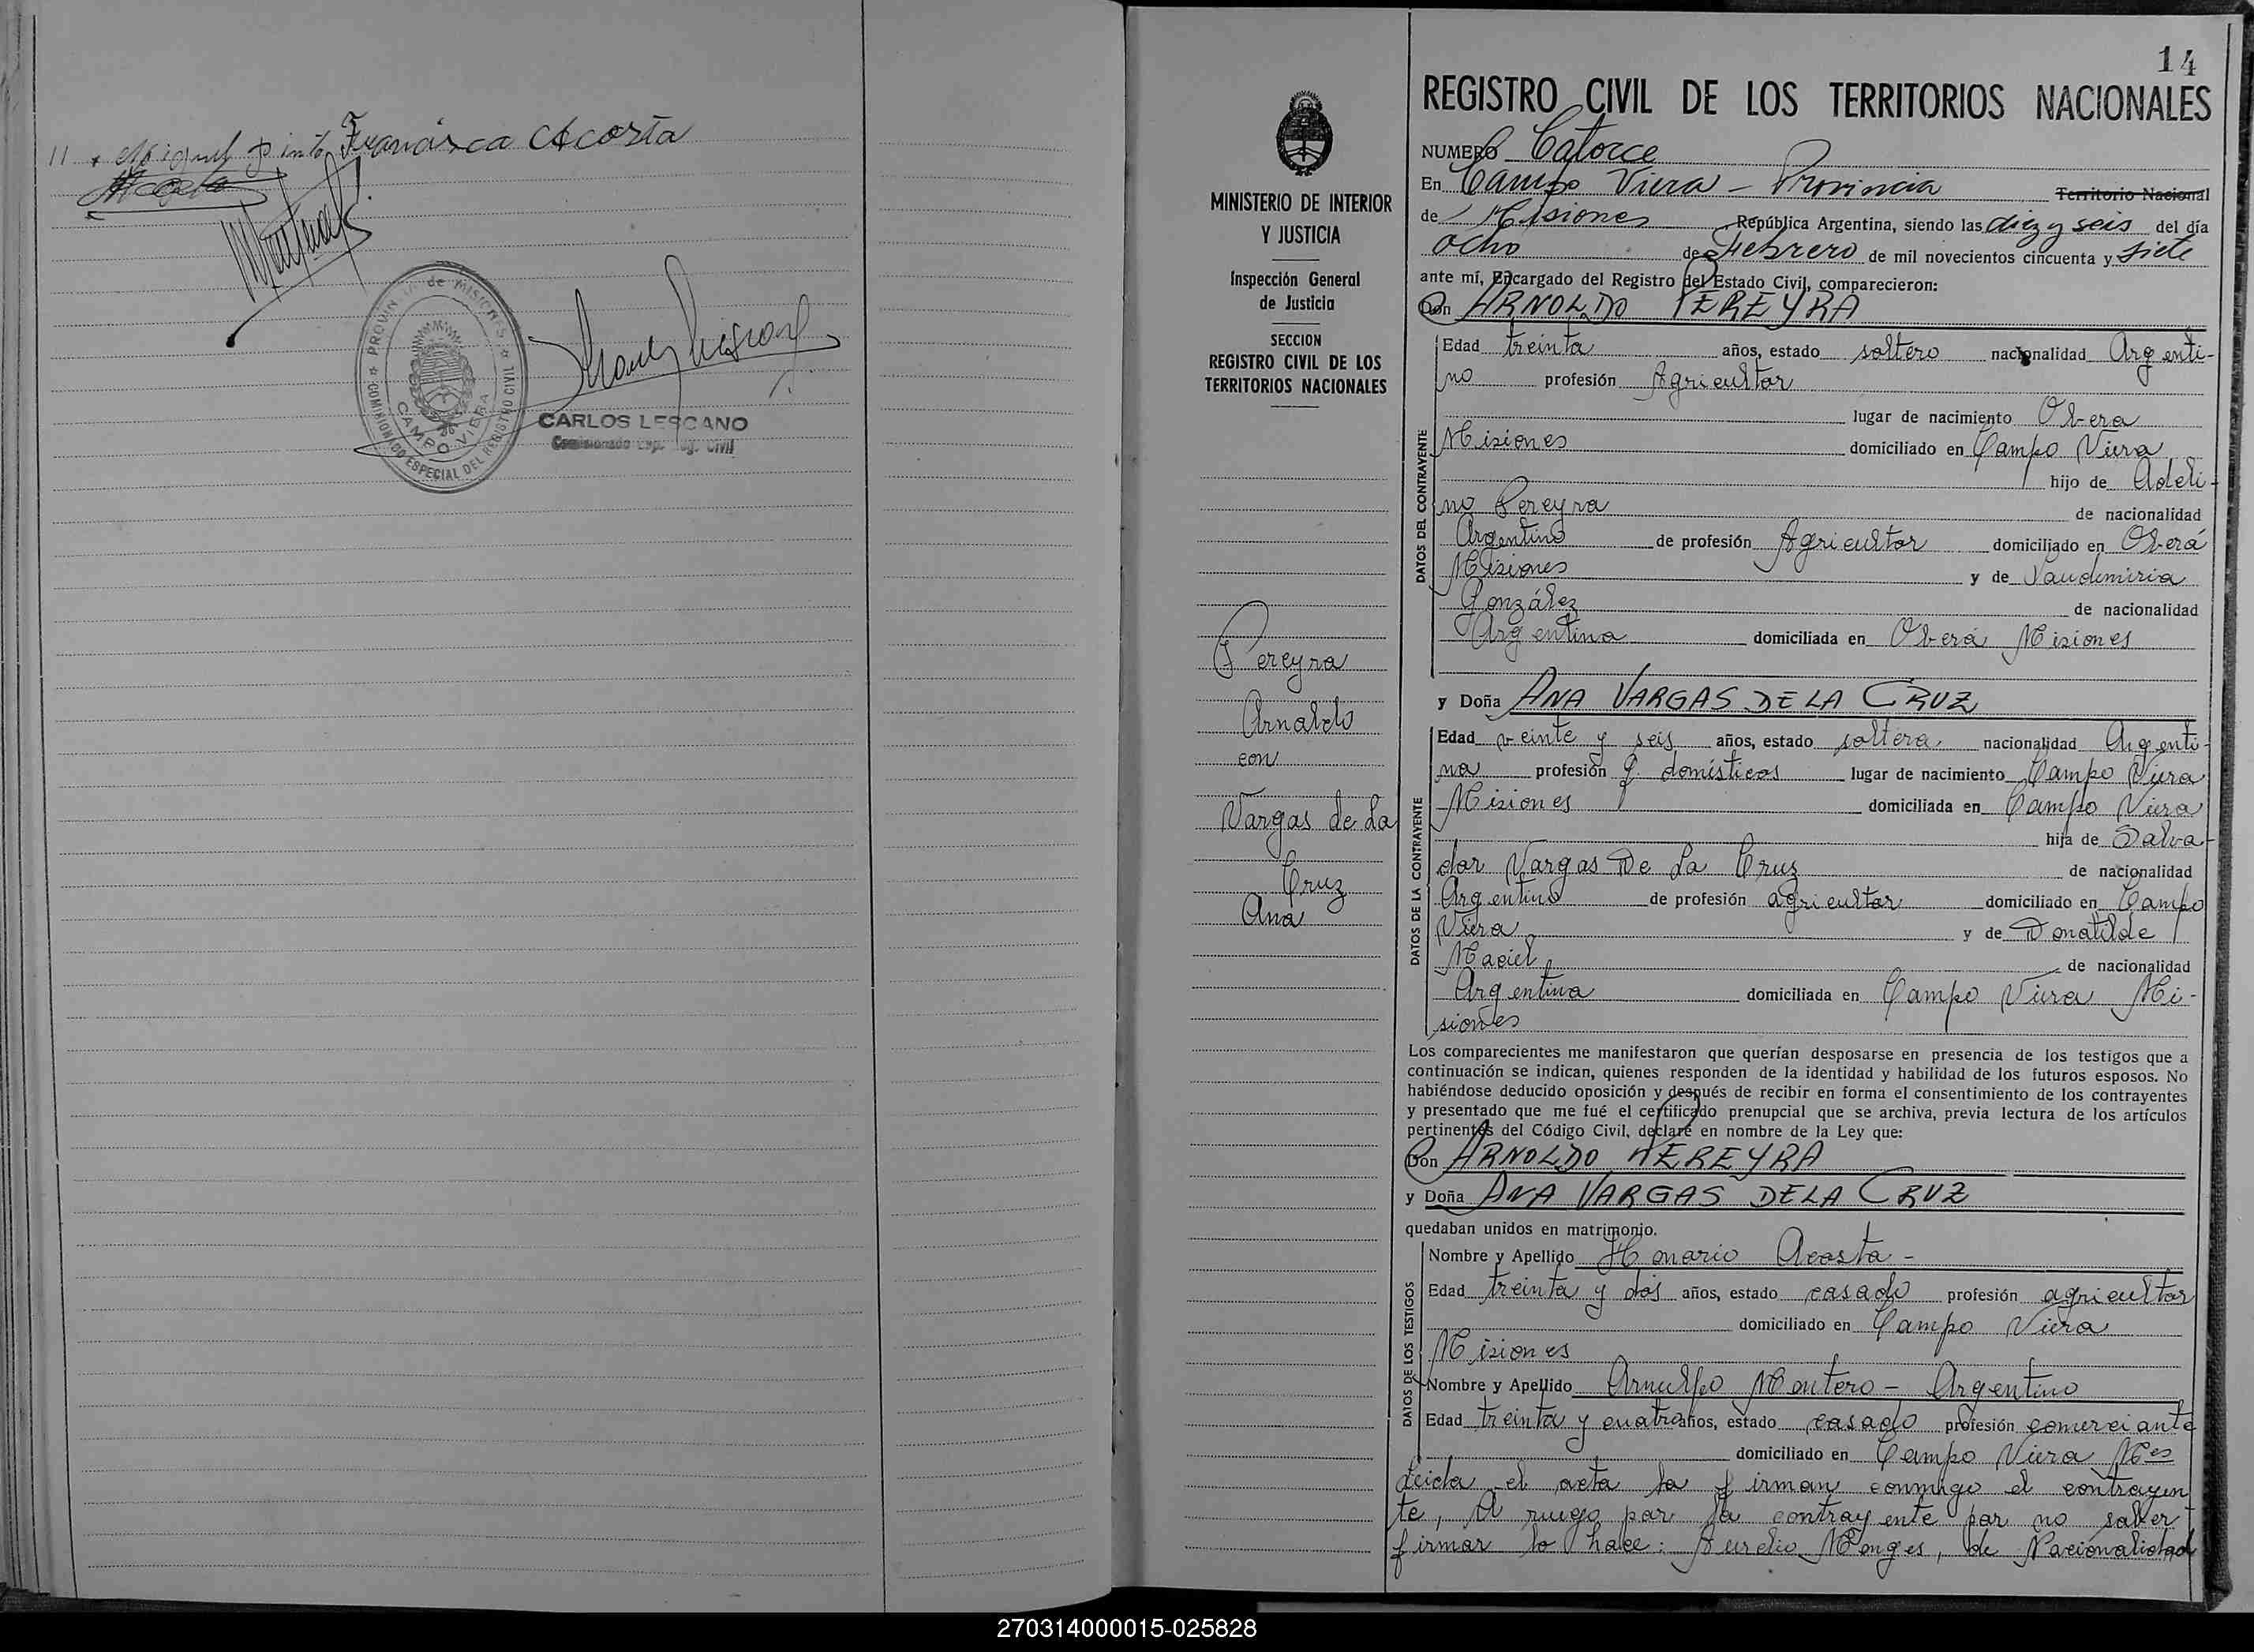 11 Miguel Pinto Francisca Acosta
Acosta
PROVINCIA de MISIONES
COMISIONADO ESPECIAL DEL REGISTRO CIVIL
CAMPO VIERA
CARLOS LESCANO
Comisionado Esp. Reg. Civil
14
MINISTERIO DE INTERIOR
Y JUSTICIA
Inspección General
de Justicia
SECCION
REGISTRO CIVIL DE LOS
TERRITORIOS NACIONALES
Pereyra
Arnaldo
con
Vargas de La
Cruz
Ana
REGISTRO CIVIL DE LOS TERRITORIOS NACIONALES
NUMERO Catorce
En Campo Viera - Provincia Territorio Nacional
de Misiones República Argentina, siendo las diez y seis del día
ocho de Febrero de mil novecientos cincuenta y siete
ante mí, Encargado del Registro del Estado Civil, comparecieron:
Don ARNOLDO PEREYRA
DATOS DEL CONTRAYENTE
Edad treinta años, estado soltero nacionalidad Argenti-
no profesión Agricultor
lugar de nacimiento Obera
Misiones domiciliado en Campo Viera
hijo de Adeli-
no Pereyra de nacionalidad
Argentino de profesión Agricultor domiciliado en Oberá
Misiones y de Laudemiria
González de nacionalidad
Argentina domiciliada en Oberá Misiones
y Doña ANA VARGAS DE LA CRUZ
DATOS DE LA CONTRAYENTE
Edad veinte y seis años, estado soltera, nacionalidad Argenti-
na profesión q. domésticos lugar de nacimiento Campo Viera
Misiones domiciliada en Campo Viera
hija de Salva-
dor Vargas De La Cruz de nacionalidad
Argentino de profesión agricultor domiciliado en Campo
Viera y de Donatilde
Maciel de nacionalidad
Argentina domiciliada en Campo Viera Mi-
siones
Los comparecientes me manifestaron que querían desposarse en presencia de los testigos que a
continuación se indican, quienes responden de la identidad y habilidad de los futuros esposos. No
habiéndose deducido oposición y después de recibir en forma el consentimiento de los contrayentes
y presentado que me fué el certificado prenupcial que se archiva, previa lectura de los artículos
pertinentes del Código Civil, declaré en nombre de la Ley que:
Don ARNOLDO PEREYRA
y Doña ANA VARGAS DE LA CRUZ
quedaban unidos en matrimonio.
DATOS DE LOS TESTIGOS
Nombre y Apellido Honario Acosta -
Edad treinta y dos años, estado casado profesión agricultor
domiciliado en Campo Viera
Misiones
Nombre y Apellido Arnulfo Montero - Argentino
Edad treinta y cuatro años, estado casado profesión comerciante
domiciliado en Campo Viera Mes
Leida el acta la firman conmigo el contrayen
te, A ruego por la contrayente por no saber
firmar lo hace: Aurelio Monges, de Nacionalidad
270314000015-025828